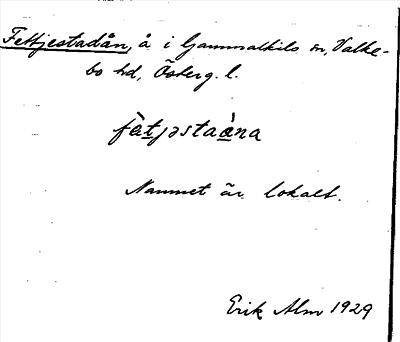 Fettjestadån, å i Gammalkils sn, Valke-
bo hd, Österg. l.
fàtjəstaàna
Namnet är lokalt.
Erik Alm 1929